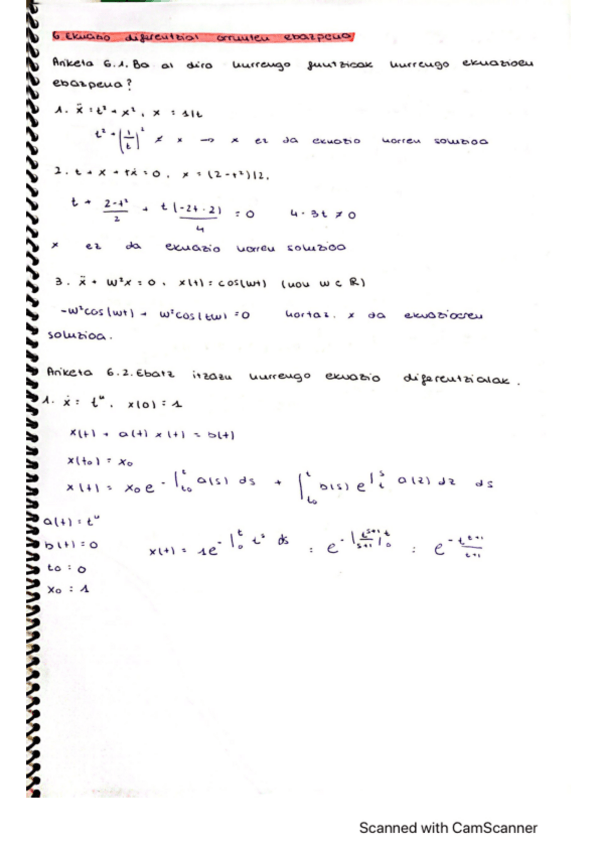 6. Ekuazio diferentzial arrunten ebazpena
Ariketa 6.1. Ba al dira hurrengo funtzioak hurrengo ekuazioen
ebazpena?
1. ẋ = t² + x², x = 1/t
t² + (1/t)² ≠ x → x ez da ekuazio horren soluzioa
2. t + x + tẋ = 0, x = (2-t²)/2.
t + (2-t²)/2 + t(-2t·2)/4 = 0 4·3t ≠ 0
x ez da ekuazio horren soluzioa
3. ẍ + w²x = 0, x(t) = cos(wt) (non w ∈ R)
-w²cos(wt) + w²cos(tw) = 0 hortaz, x da ekuazioaren
soluzioa.
Ariketa 6.2. Ebatz itzazu hurrengo ekuazio diferentzialak.
1. ẋ = tⁿ, x(0) = 1
x(t) + a(t) x(t) = b(t)
x(t₀) = x₀
x(t) = x₀ e - ∫ₜ₀ᵗ a(s) ds + ∫ₜ₀ᵗ b(s) e ∫ₜˢ a(z) dz ds
a(t) = tⁿ
b(t) = 0
t₀ = 0
x₀ = 1
x(t) = 1e^(-∫₀ᵗ tˢ ds) = e^(-|t^(s+1)/(s+1)|₀ᵗ) = e^(-t^(t+1)/(t+1))
Scanned with CamScanner